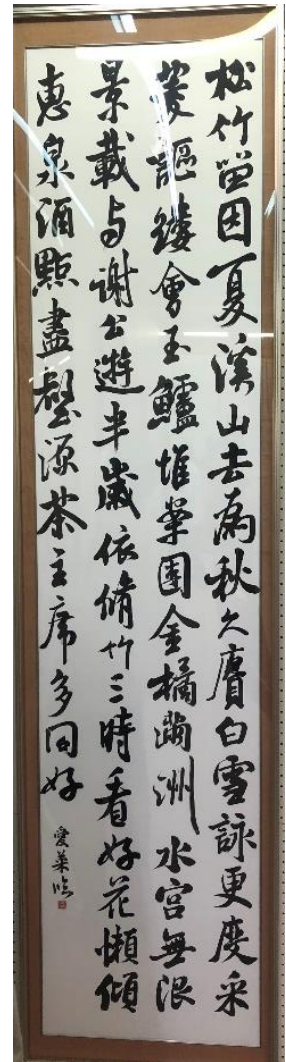 松竹留因夏溪山去為秋久賡白雪詠更度采
菱謳縷會玉鱸堆案團金橘滿洲水宮無限
景載与謝公遊半歲依脩竹三時看好花懶傾
惠泉酒點盡壑源茶主席多同好
愛葉臨